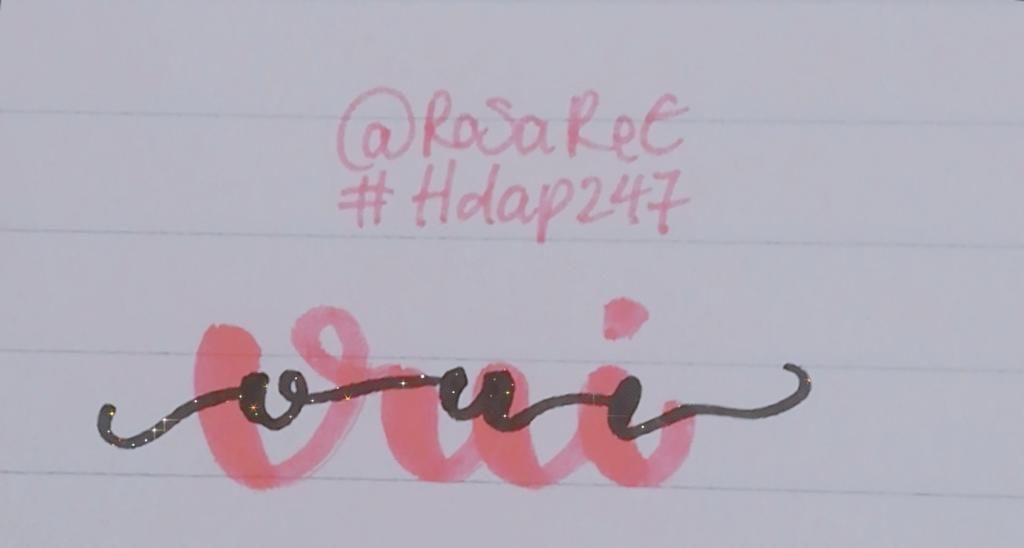 @RosaReE
#Hdap247
vui
vui